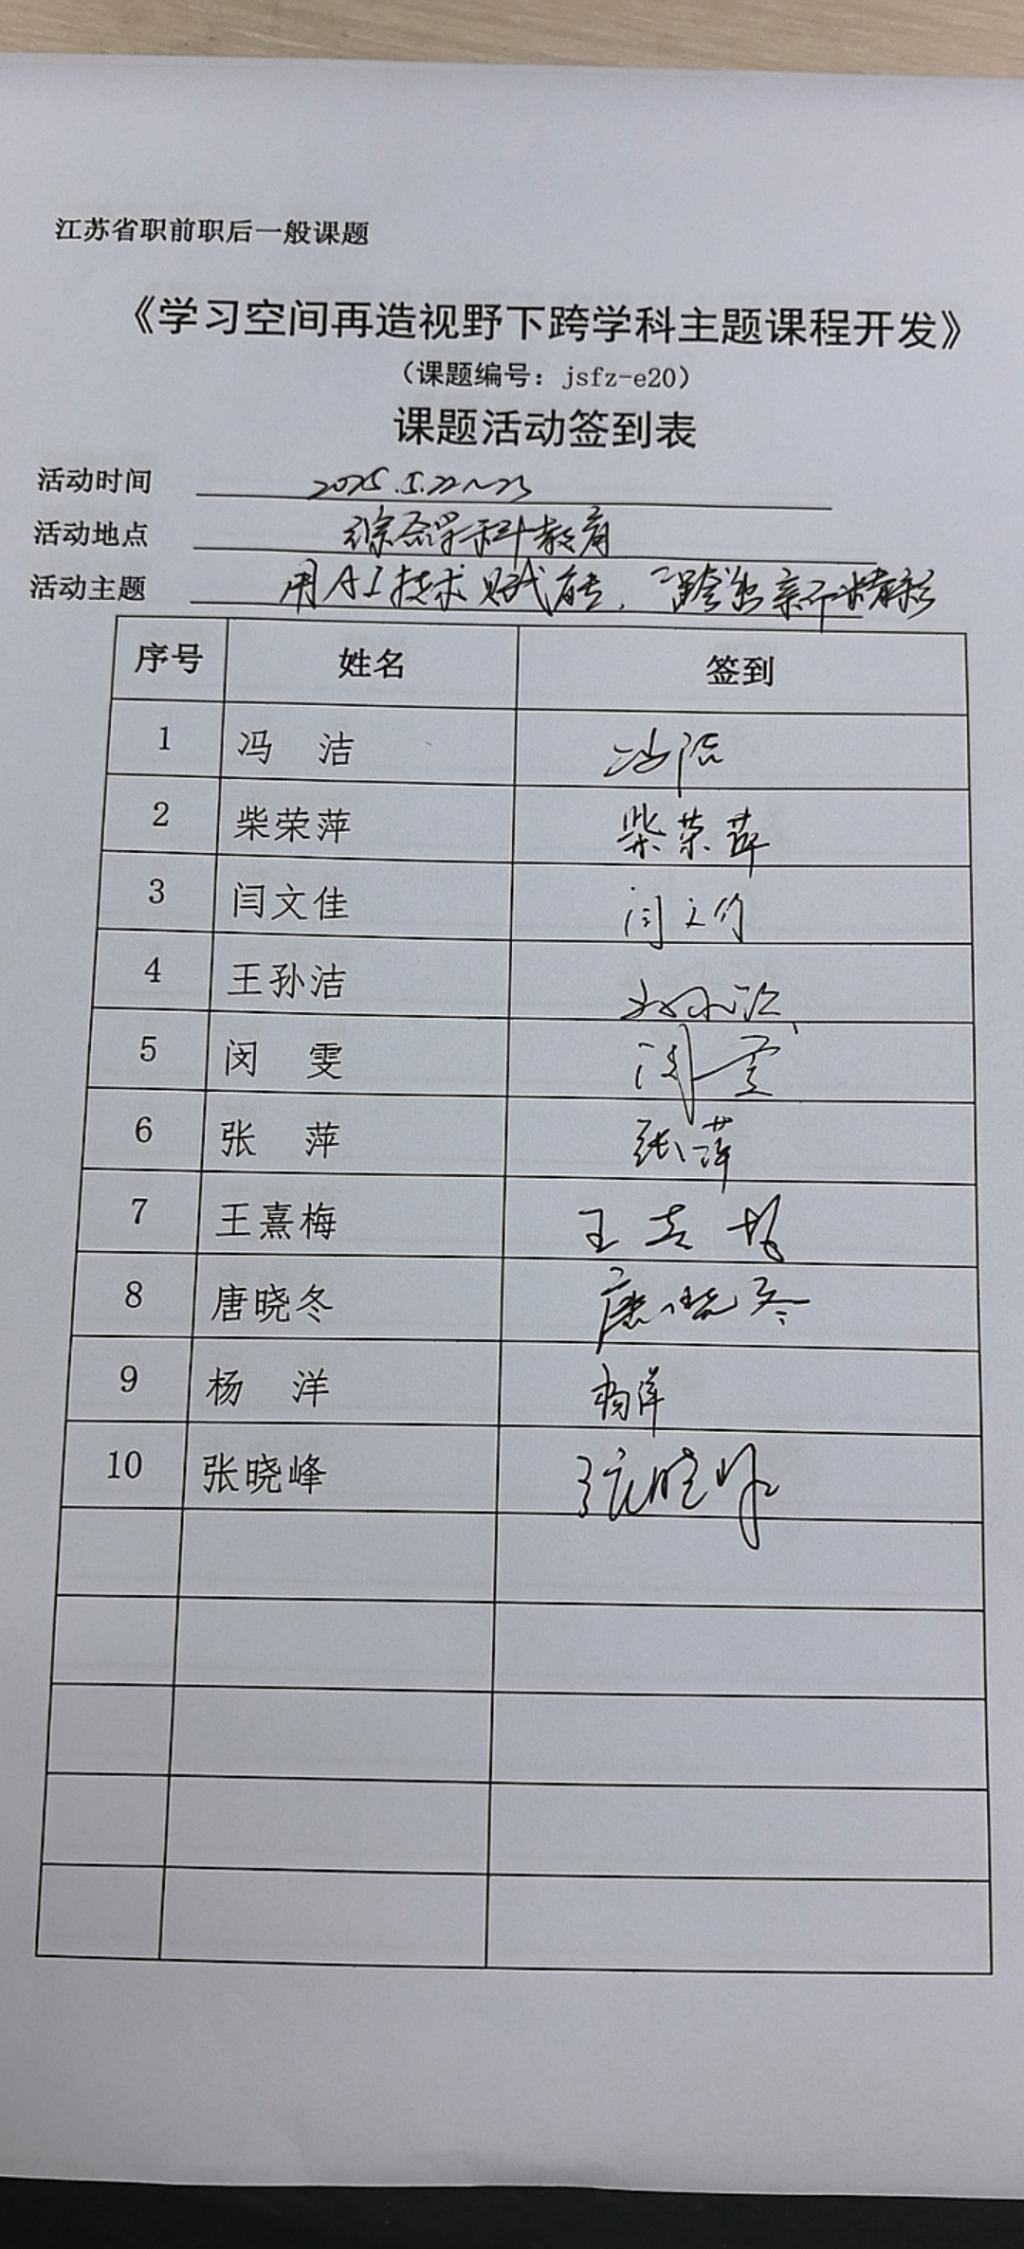 江苏省职前职后一般课题
《学习空间再造视野下跨学科主题课程开发》
（课题编号：jsfz-e20）
课题活动签到表
活动时间 2025.5.22~23
活动地点 综合学科教育
活动主题 用AI技术赋能，"跨"出亲子精彩
序号 姓名 签到
1 冯 洁 冯洁
2 柴荣萍 柴荣萍
3 闫文佳 闫文佳
4 王孙洁 王孙洁
5 闵 雯 闵雯
6 张 萍 张萍
7 王熹梅 王熹梅
8 唐晓冬 唐晓冬
9 杨 洋 杨洋
10 张晓峰 张晓峰